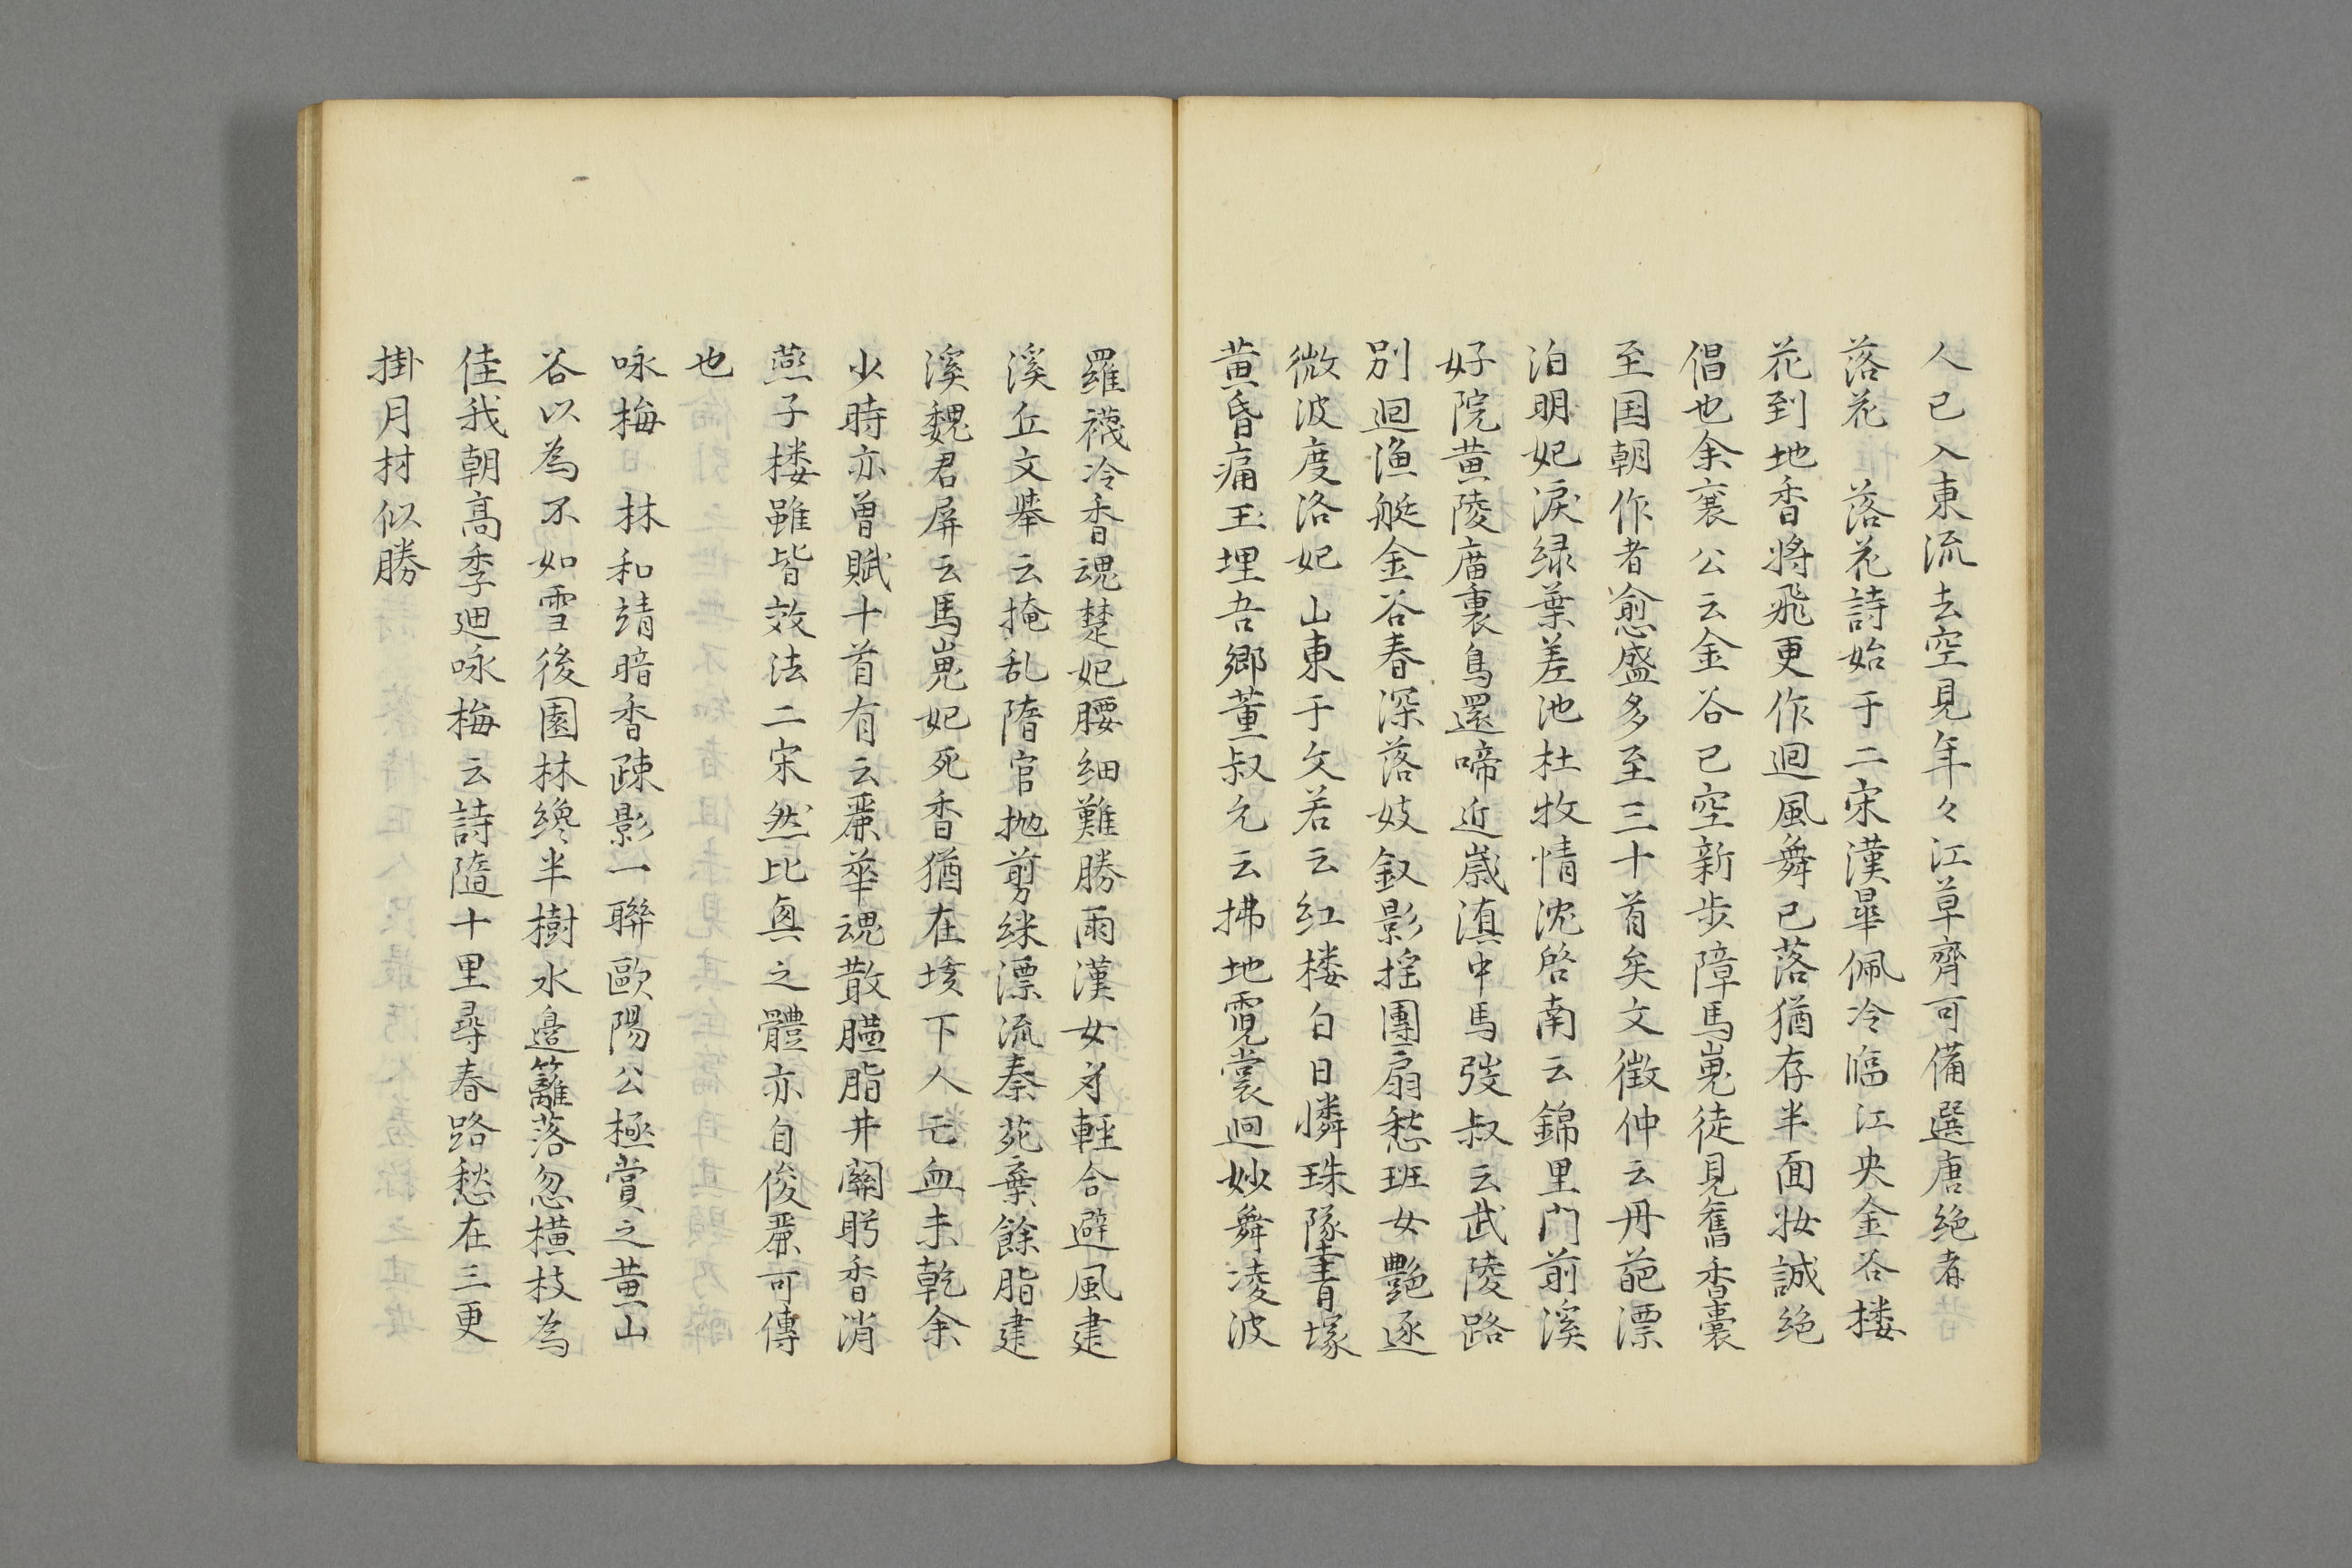 人已入東流去空見年々江草齊可備選唐絶者
落花　落花詩始于二宋漢皋佩冷臨江央金谷楼
花到地香將飛更作迴風舞已落猶存半面妝誠絶
倡也余襄公云金谷已空新步障馬嵬徒見舊香囊
至国朝作者愈盛多至三十首矣文徴仲云丹葩漂
泊明妃淚緑葉差池杜牧情沈啓南云錦里門前溪
好院黄陵庙裏鳥還啼近歲滇中馬弢叔云武陵路
別迴漁艇金谷春深落妓釵影揺團扇愁班女艷逐
微波度洛妃山東于文若云紅楼白日憐珠隊青塚
黄昏痛玉埋吾鄉董叔允云拂地霓裳迴妙舞凌波
羅襪冷香魂楚妃腰细難勝雨漢女身輕合避風建
溪丘文舉云掩乱隋官抛剪綵漂流秦苑棄餘脂建
溪魏君屏云馬嵬妃死香猶在垓下人亡血未乾余
少時亦曽賦十首有云麗華魂散臙脂井關盻香消
燕子楼雖皆效法二宋然比興之體亦自俊麗可傳
也
咏梅　林和靖暗香疎影一聯歐陽公極賞之黄山
谷以為不如雪後園林纔半樹水邉籬落忽橫枝為
佳我朝高季迪咏梅云詩隨十里尋春路愁在三更
掛月村似勝